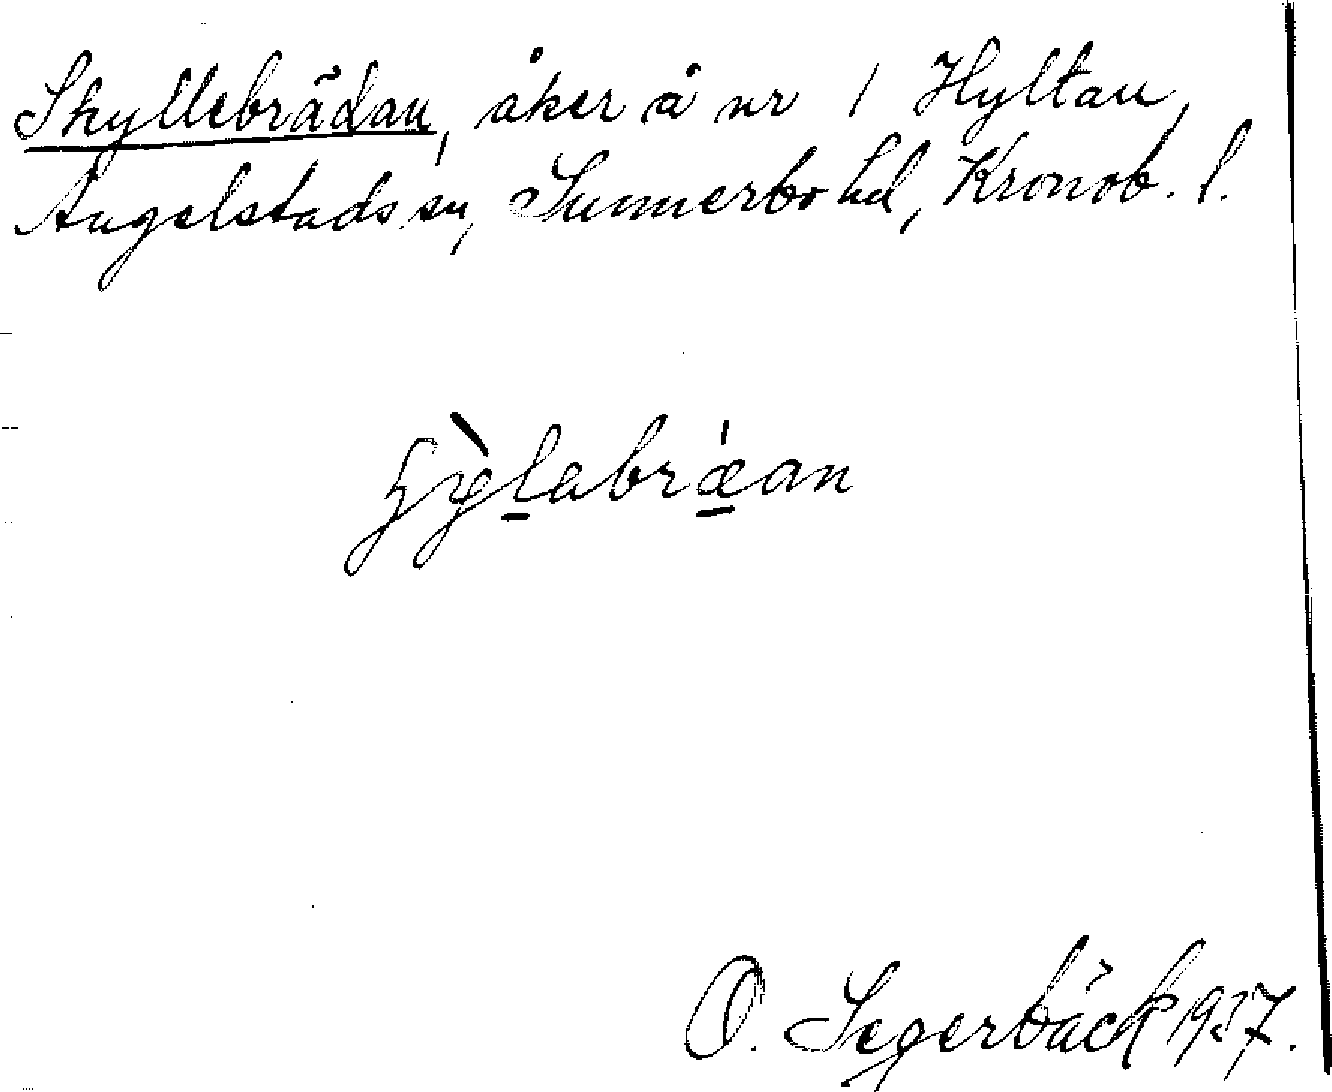 Skyllebrädan, åker å nr 1 Hyltan,
Angelstads sn, Sunnerbo hd, Kronob. l.
O. Segerbäck 1937.